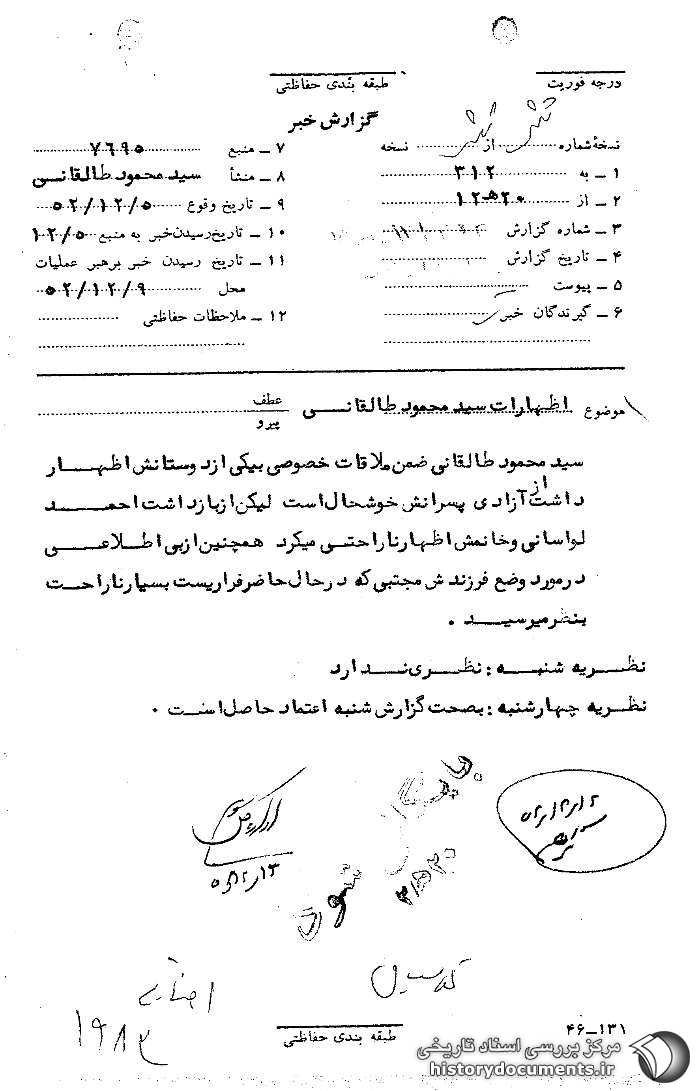 درجه فوریت
طبقه بندی حفاظتی
گزارش خبر
نسخهٔ شماره از نسخه
۱ – به ۳۱۲
۲ – از ۲۰هـ۱۲
۳ – شماره گزارش
۴ – تاریخ گزارش
۵ – پیوست
۶ – گیرندگان خبر
۷ – منبع ۷۶۹۵
۸ – منشأ سید محمود طالقانی
۹ – تاریخ وقوع ۵۲/۱۲/۵
۱۰ – تاریخ رسیدن خبر به منبع ۱۲/۵
۱۱ – تاریخ رسیدن خبر برهبر عملیات
محل ۵۲/۱۲/۹
۱۲ – ملاحظات حفاظتی
موضوع اظهارات سید محمود طالقانی
عطف
پیرو
سید محمود طالقانی ضمن ملاقات خصوصی بیکی از دوستانش اظهار
داشت از آزادی پسرانش خوشحال است لیکن از بازداشت احمد
لواسانی و خانمش اظهار ناراحتی میکرد همچنین از بی اطلاعی
در مورد وضع فرزندش مجتبی که در حال حاضر فراریست بسیار ناراحت
بنظر میرسید .
نظریه شنبه : نظری ندارد
نظریه چهارشنبه : بصحت گزارش شنبه اعتماد حاصل است .
۱۹۸۳
۴۶–۱۳۱
طبقه بندی حفاظتی
مرکز بررسی اسناد تاریخی
historydocuments.ir